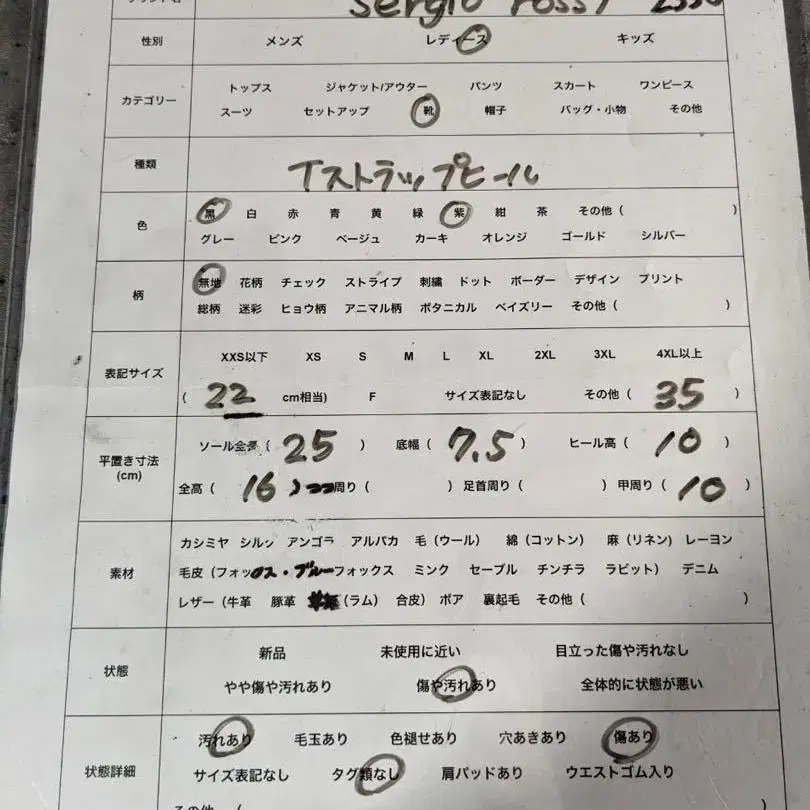 sergio rossi
性別 メンズ レディース キッズ
カテゴリー トップス ジャケット/アウター パンツ スカート ワンピース
スーツ セットアップ 靴 帽子 バッグ・小物 その他
種類 Tストラップヒール
色 黒 白 赤 青 黄 緑 紫 紺 茶 その他( )
グレー ピンク ベージュ カーキ オレンジ ゴールド シルバー
柄 無地 花柄 チェック ストライプ 刺繍 ドット ボーダー デザイン プリント
総柄 迷彩 ヒョウ柄 アニマル柄 ボタニカル ペイズリー その他( )
表記サイズ XXS以下 XS S M L XL 2XL 3XL 4XL以上
( 22 cm相当) F サイズ表記なし その他( 35 )
平置き寸法 (cm) ソール全長( 25 ) 底幅( 7.5 ) ヒール高( 10 )
全高( 16 ) 周り( ) 足首周り( ) 甲周り( 10 )
素材 カシミヤ シルク アンゴラ アルパカ 毛(ウール) 綿(コットン) 麻(リネン) レーヨン
毛皮(フォックス・ブルーフォックス ミンク セーブル チンチラ ラビット) デニム
レザー(牛革 豚革 (ラム) 合皮) ボア 裏起毛 その他( )
状態 新品 未使用に近い 目立った傷や汚れなし
やや傷や汚れあり 傷や汚れあり 全体的に状態が悪い
状態詳細 汚れあり 毛玉あり 色褪せあり 穴あきあり 傷あり
サイズ表記なし タグ類なし 肩パッドあり ウエストゴム入り
その他 (